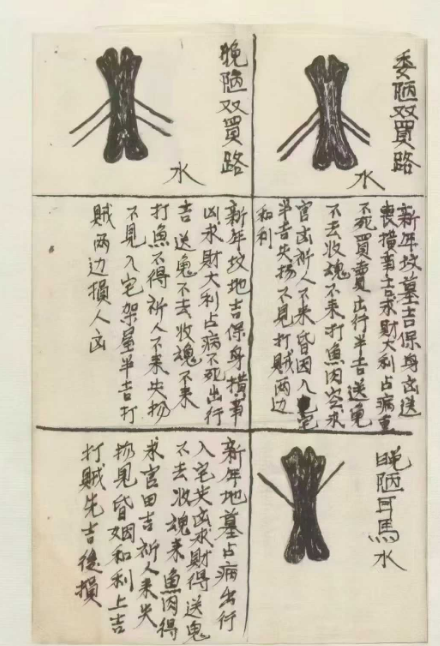 委陋双買路
水
新年坟墓吉保身凶送
喪横事吉求財大利占病重
不死買賣出行半吉送鬼
不去收魂不来打魚肉空求
官凶祈人不来昏因入宅
半吉失物不見打賊两边
和利
晚陋双買路
水
新年坟地吉保身横事
凶求財大利占病不死出行
吉送鬼不去收魂不来
打魚不得祈人不来失物
不見入宅架屋半吉打
賊两边損人凶
陋耳馬水
新年地墓占病出行
入宅失凶求財得送鬼
不去收魂来魚肉得
求官田吉祈人来失
物見昏姻和利上吉
打賊先吉後損